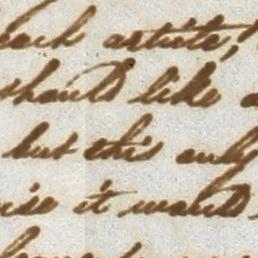 each article,
should like a
but this only
ise it would